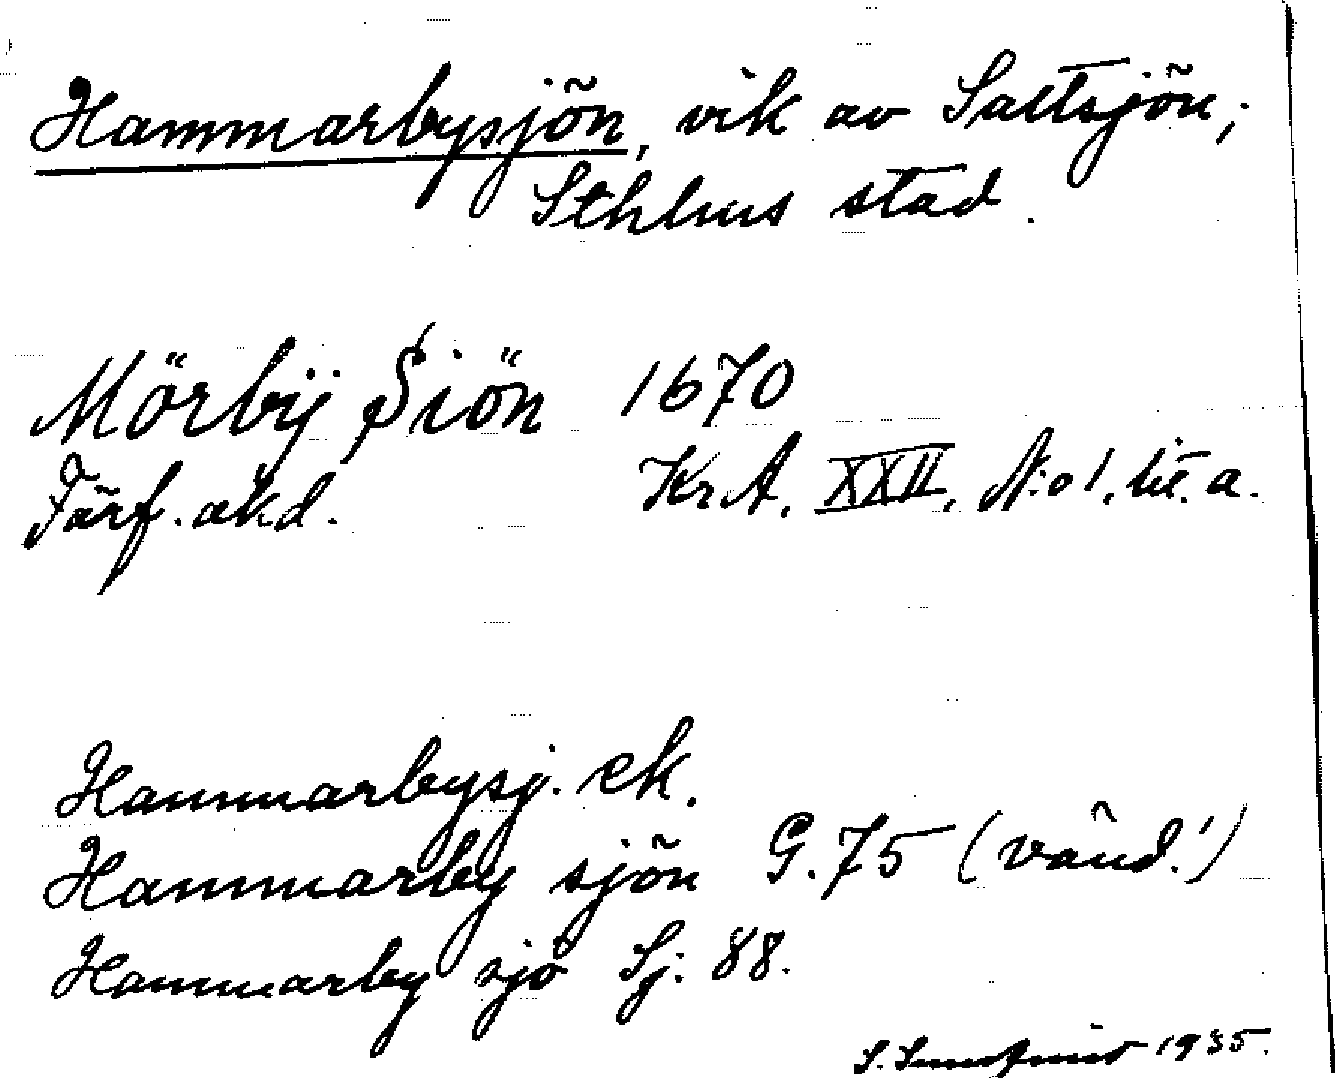 Hammarbysjön, vik av Saltsjön;
Sthlms stad.
Mörbÿ Siön 1670
Färf. akd. Kr.A. XXII, N:o 1, lit. a.
Hammarbysj. ek.
Hammarby sjön G. 75 (vänd!)
Hammarby sjö Sj. 88.
S. 1935.